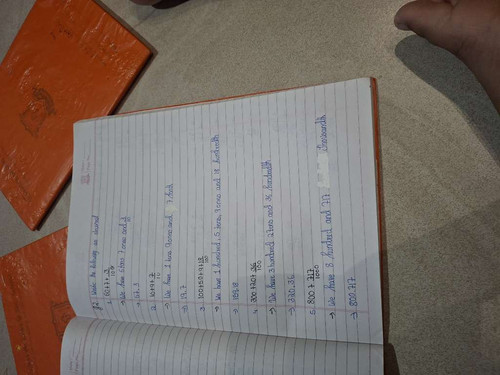 Q2. Write the following as decimal
1. 60+7+3/10
→ We have 6 tens 7 ones and
→ 67.3
2. 10+9+7/10
→ We have 1 tens 9 ones and 7
→ 19.7
3. 100+50+9+18/100
→ We have 1 hundred, 5 tens, 9 ones and 18 hundredth
→ 159.18
4. 300+20+36/100
→ We have 3 hundred 2 tens and 36 hundredth
→
5. 800+717/1000
→ We have 8 hundred and 717
→ 800.717